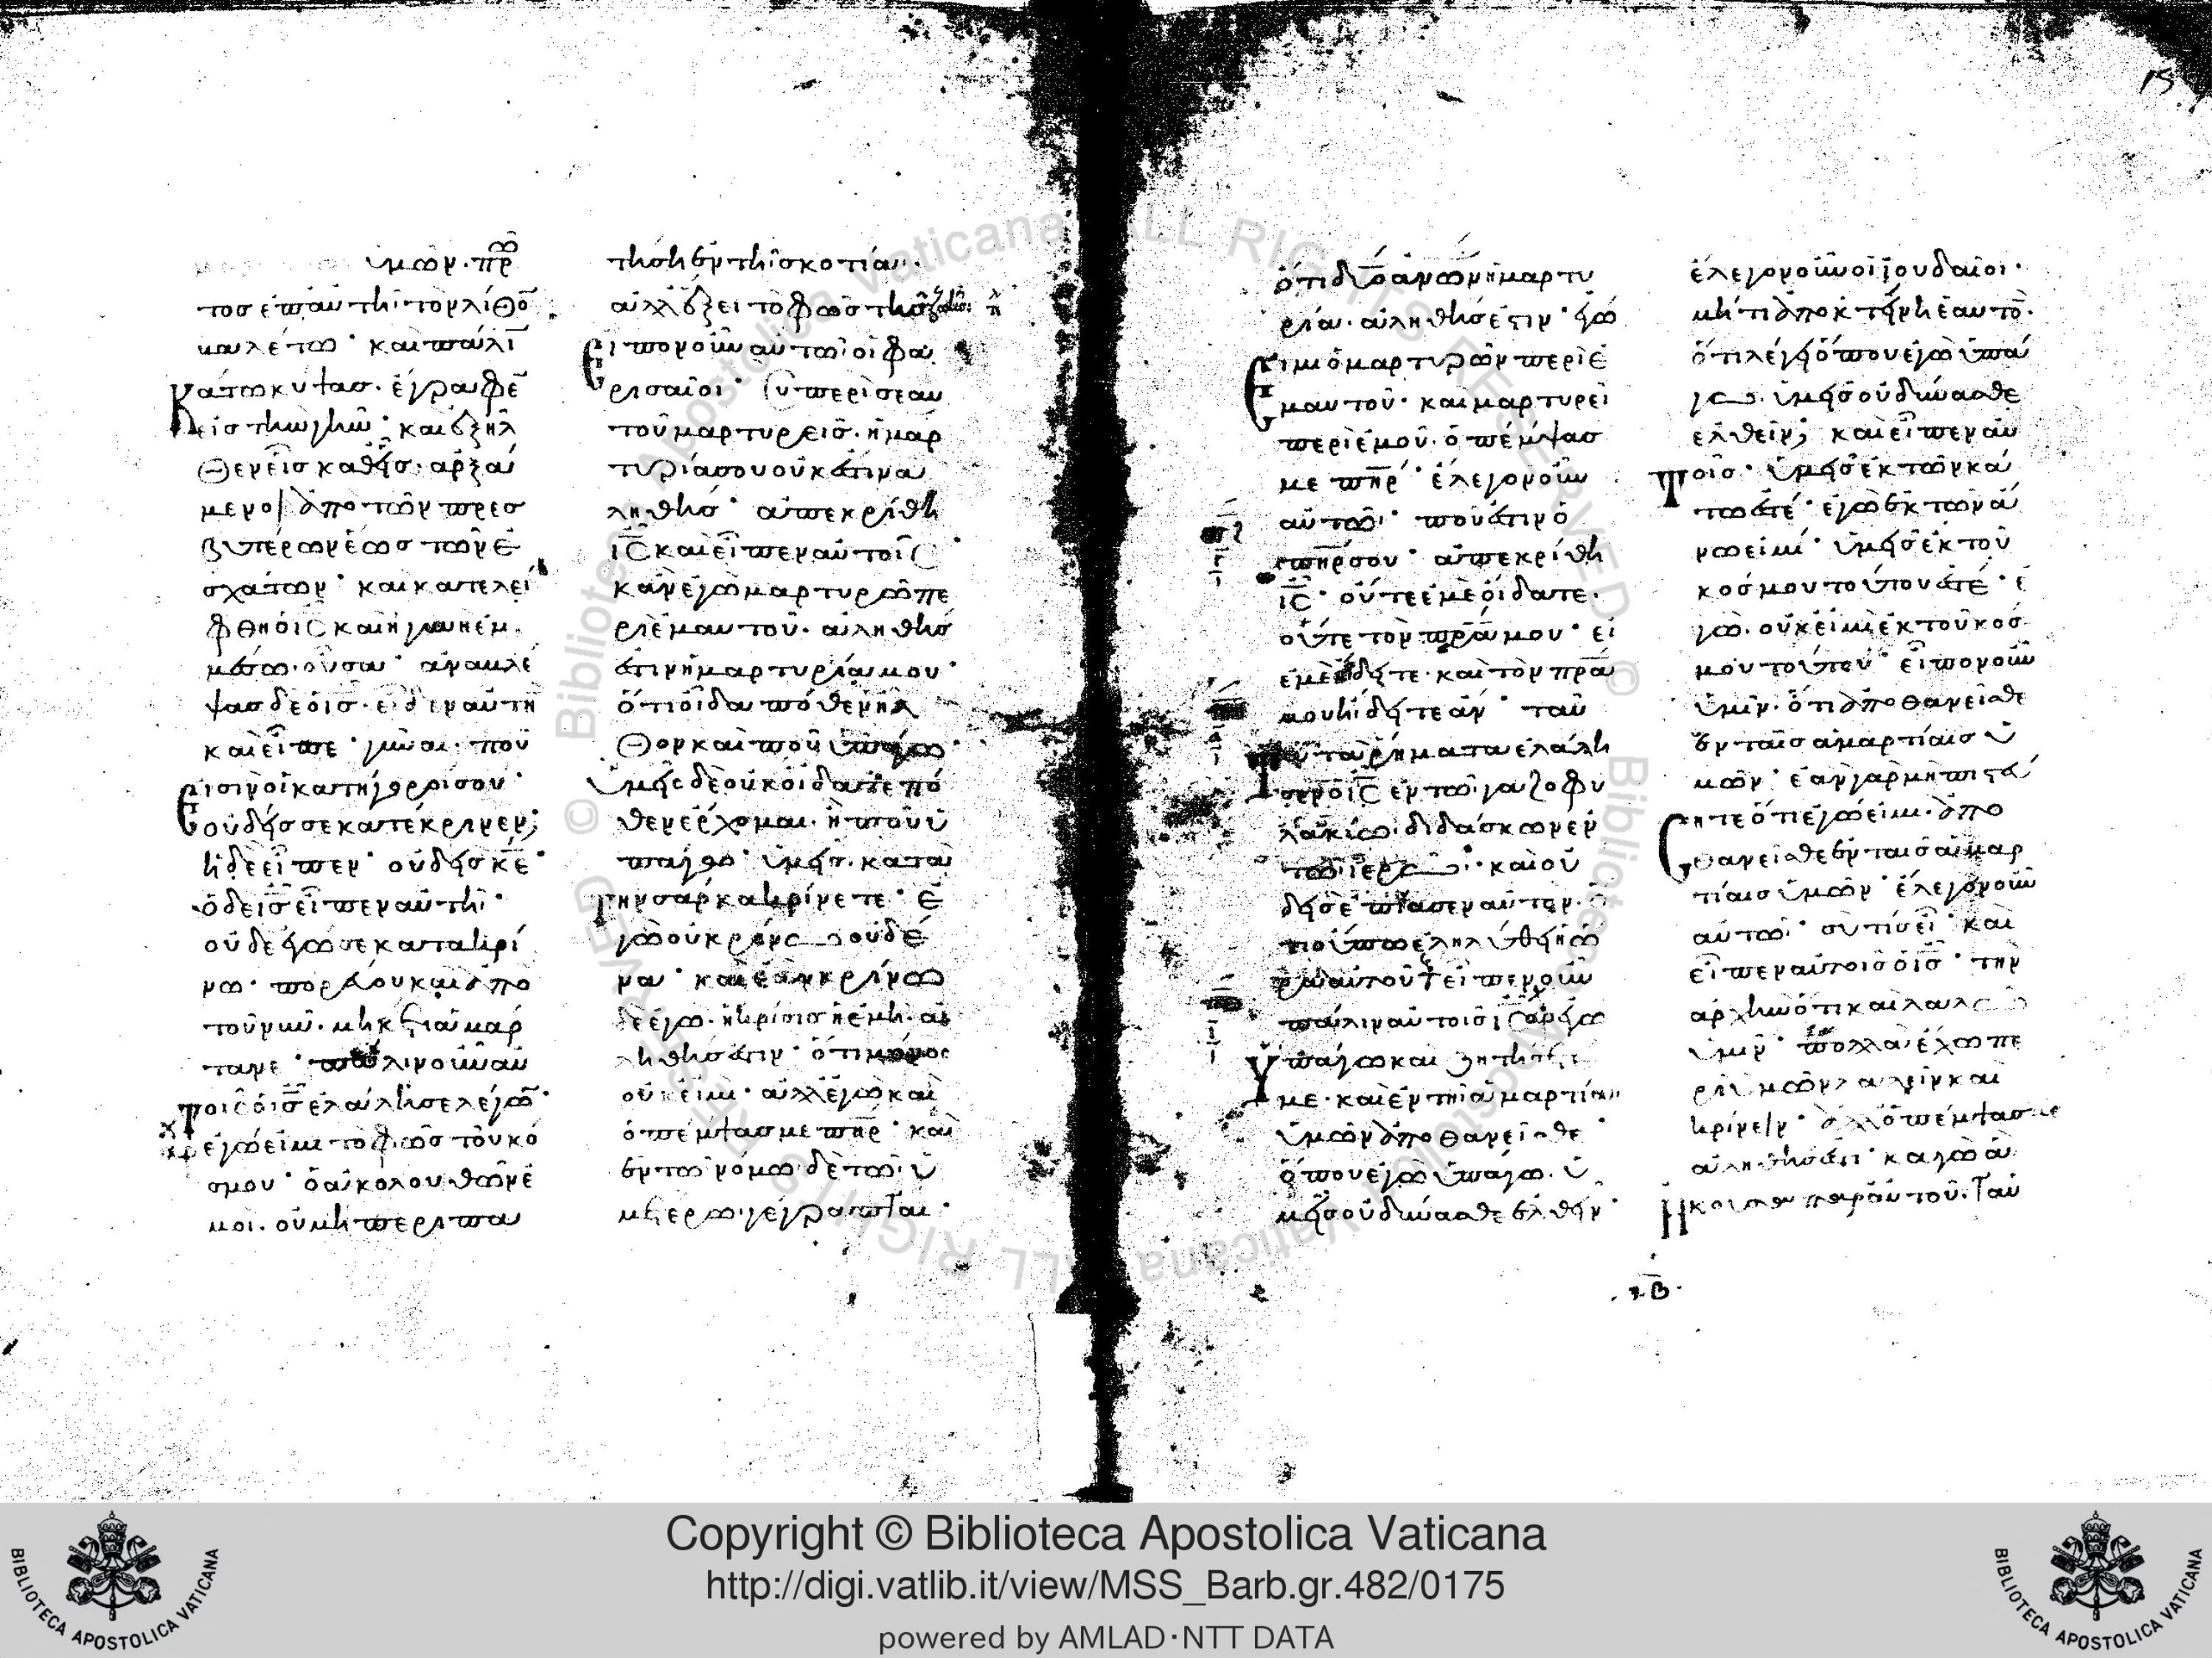 ὑμῶν· πρω
τοσ ἐπαυτὴ τὸν λίθο
βαλέτω· καὶ πάλι
κάτω κύψασ· ἔγραφε
εἰσ τὴν γῆν· καὶ ἐξῆλ
θεν εἷσ καθεῖσ· ἀρξά
μενοι ἀπὸ τῶν πρεσ
βυτέρων ἕωσ τῶν ἐ
σχάτων· καὶ κατελεί
φθη ὁ ις καὶ ἡ γυνὴ ἐμ
μέσω· οὖσα· ἀναβλέ
ψασ δὲ ὁ ισ· εἶδεν αὐτὴ
καὶ εἶπε· γύναι· ποῦ
εἰσιν οἱ κατήγοροί σου·
οὐδείσ σε κατέκρινεν;
ἡ δὲ εἶπεν· οὐδεὶσ κε·
ὁ δὲ ισ εἶπεν αὐτῆ·
οὐδὲ ἐγώ σε κατακρί
νω· πορεύου καὶ ἀπὸ
τοῦ νῦν· μηκέτι ἁμάρ
τανε· πάλιν οὖν αὐ
τοῖς ὁ ισ ἐλάλησε λέγων·
ἐγώ εἰμι τὸ φῶσ τοῦ κό
σμου· ὁ ἀκολουθῶν ἐ
μοί· οὐ μὴ περιπα
τήση ἐν τῆ σκοτία·
ἀλλ ἕξει τὸ φῶσ τῆσ ζωῆσ
εἶπον οὖν αὐτῶ οἱ φα
ρισαῖοι· σὺ περὶ σεαυ
τοῦ μαρτυρεῖσ· ἡ μαρ
τυρία σου οὐκ ἔστιν ἀ
ληθήσ· ἀπεκρίθη
ις καὶ εἶπεν αὐτοῖς·
κἂν ἐγὼ μαρτυρῶ πε
ρὶ ἐμαυτοῦ· ἀληθήσ
ἐστιν ἡ μαρτυρία μου·
ὅτι οἶδα πόθεν ἦλ
θον καὶ ποῦ ὑπάγω·
ὑμεῖς δὲ οὐκ οἴδατε πό
θεν ἔρχομαι· ἢ ποῦ ὑ
πάγω· ὑμεῖσ· κατὰ
τὴν σάρκα κρίνετε· ἐ
γὼ οὐ κρίνω οὐδέ
να· καὶ ἐὰν κρίνω
δὲ ἐγώ· ἡ κρίσισ ἡ ἐμὴ· ἀ
ληθήσ ἐστιν· ὅτι μόνος
οὐκ εἰμὶ· ἀλλ ἐγὼ καὶ
ὁ πέμψασ με πηρ· καὶ
ἐν τῶ νόμω δὲ τῶ ὑ
μετέρω· γέγραπται·
ὅτι δύο ανων ἡ μαρτυ
ρία· ἀληθήσ ἐστιν· ἐγώ
εἰμι ὁ μαρτυρῶν περὶ ἐ
μαυτοῦ· καὶ μαρτυρεῖ
περὶ ἐμοῦ· ὁ πέμψασ
με πηρ· ἔλεγον οὖν
αὐτῶ· ποῦ ἐστιν ὁ
πηρ σου· ἀπεκρίθη
ις· οὔτε ἐμὲ οἴδατε·
οὔτε τὸν πρα μου· εἰ
ἐμὲ ἤδειτε· καὶ τὸν πρα
μου ἤδειτε ἄν· ταῦ
τα τὰ ῥήματα ἐλάλη
σεν ὁ ις ἐν τῶ γαζοφυ
λακίω· διδάσκων ἐν
τῶ ἱερῶ· καὶ οὐ
δεὶσ ἐπίασεν αὐτόν· ὅ
τι οὔπω ἐληλύθει ἡ ὥ
ρα αὐτοῦ εἶπεν οὖν
πάλιν αὐτοῖσ ις ἐγὼ
ὑπάγω καὶ ζητήσετε
με· καὶ ἐν τῆ ἁμαρτία
ὑμῶν ἀποθανεῖσθε·
ὅπου ἐγὼ ὑπάγω· ὑ
μεῖσ οὐ δύνασθε ἐλθεῖν·
ἔλεγον οὖν οἱ ἰουδαῖοι·
μήτι ἀποκτενῆ ἑαυτὸ·
ὅτι λέγει ὅπου ἐγὼ ὑπά
γω ὑμεῖσ οὐ δύνασθε
ἐλθεῖν; καὶ εἶπεν αὐ
τοῖσ· ὑμεῖσ ἐκ τῶν κά
τω ἐστέ· ἐγὼ ἐκ τῶν ἄ
νω εἰμί· ὑμεῖσ ἐκ τοῦ
κόσμου τούτου ἐστέ· ἐ
γὼ· οὐκ εἰμὶ ἐκ τοῦ κόσ
μου τούτου· εἶπον οὖν
ὑμῖν· ὅτι ἀποθανεῖσθε
ἐν ταῖσ ἁμαρτίαισ ὑ
μῶν· ἐὰν γὰρ μὴ πιστεύ
σητε ὅτι ἐγώ εἰμι· ἀπο
θανεῖσθε ἐν ταῖσ ἁμαρ
τίαισ ὑμῶν· ἔλεγον οὖν
αὐτῶ· σὺ τίσ εἶ· καὶ
εἶπεν αὐτοῖσ ὁ ισ· τὴν
ἀρχὴν ὅτι καὶ λαλῶ
ὑμῖν· πολλὰ ἔχω πε
ρὶ ὑμῶν λαλεῖν καὶ
κρίνειν· ἀλλ ὁ πέμψασ με
ἀληθήσ ἐστι· κἀγὼ ἃ
ἤκουσα παρ αὐτοῦ· ταῦ
ιβ
Copyright © Biblioteca Apostolica Vaticana
http://digi.vatlib.it/view/MSS_Barb.gr.482/0175
powered by AMLAD·NTT DATA
BIBLIOTECA APOSTOLICA VATICANA
BIBLIOTECA APOSTOLICA VATICANA